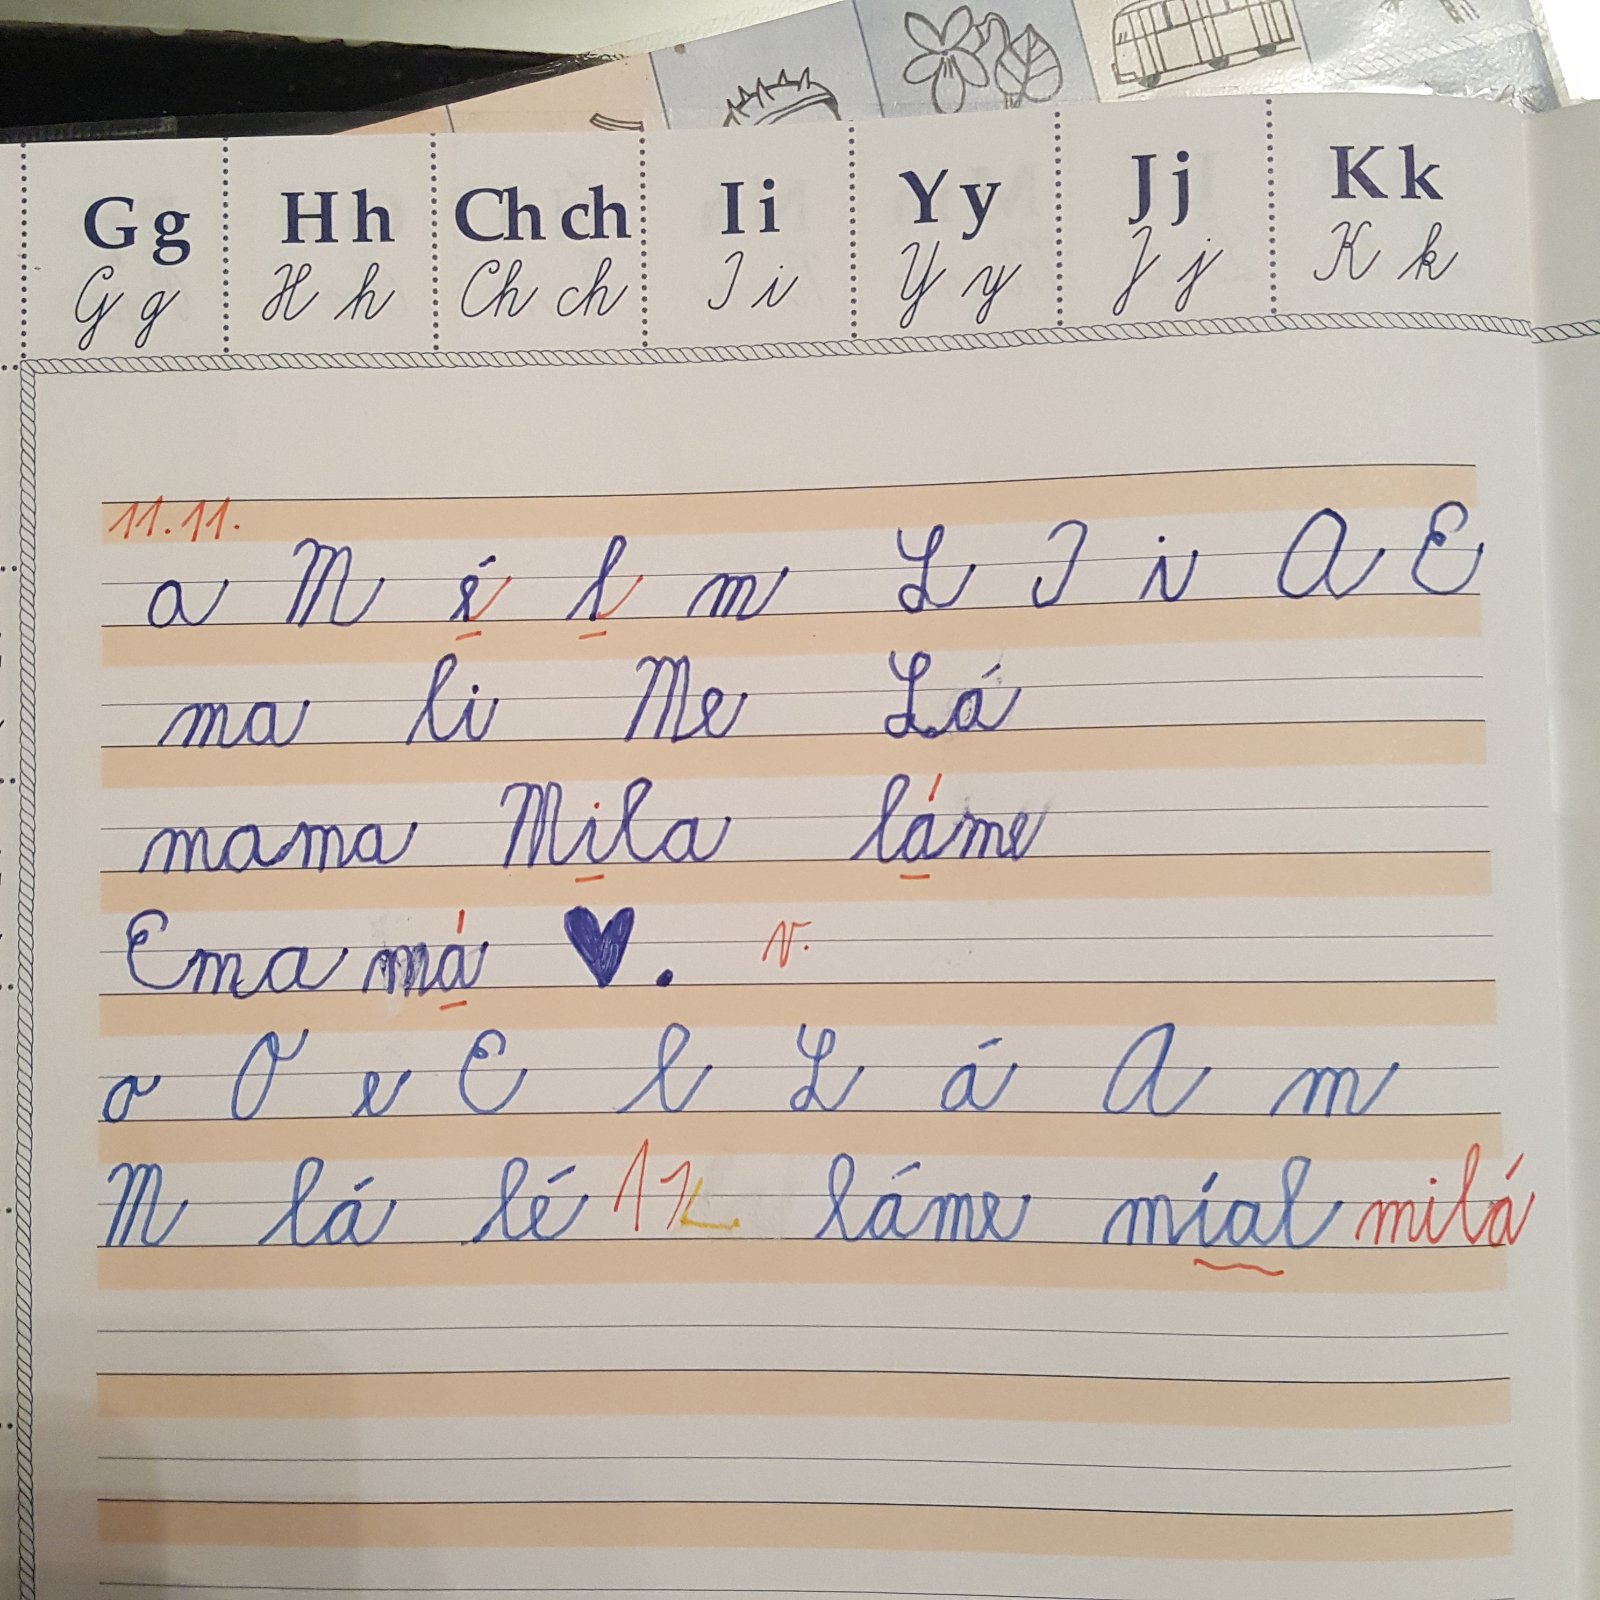 G g H h Ch ch I i Y y J j K k
G g H h Ch ch I i Y y J j K k
11.11.
a M é l m L I i A E
ma li Me Lá
mama Mila láme
Ema má ♥. v.
o O e E l L á A m
M lá lé láme míal milá